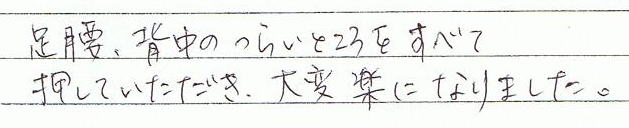 足腰、背中のつらいところをすべて
押していただき、大変楽になりました。